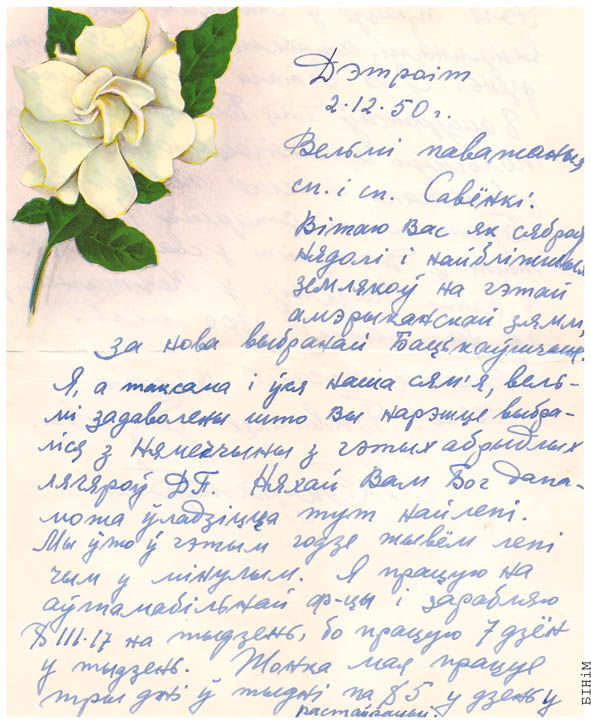 Дэтроіт
2.12.50 г.
Вельмі паважаныя
сп. і сп. Савёнкі.
Вітаю Вас як сяброў
нядолі і найбліжшых
землякоў на гэтай
амэрыканскай зямлі,
за нова выбранай Бацькаўшчыне.
Я, а таксама і ўся наша сям'я, вель-
мі задаволены што Вы нарэшце выбра-
ліся з Нямеччыны з гэтых абрыдлых
лягяроў ДП. Няхай Вам Бог дапа-
можа ўладзіцца тут найлепі.
Мы ўжо ў гэтым годзе жывём лепі
чым у мінулым. Я працую на
аўтамабільнай ф-цы і зарабляю
111.17 на тыдзень, бо працую 7 дзён
у тыдзень. Жонка мая працуе
тры дні ў тыдні па $5 у дзень у
рэстаўрацыі.
БІНіМ